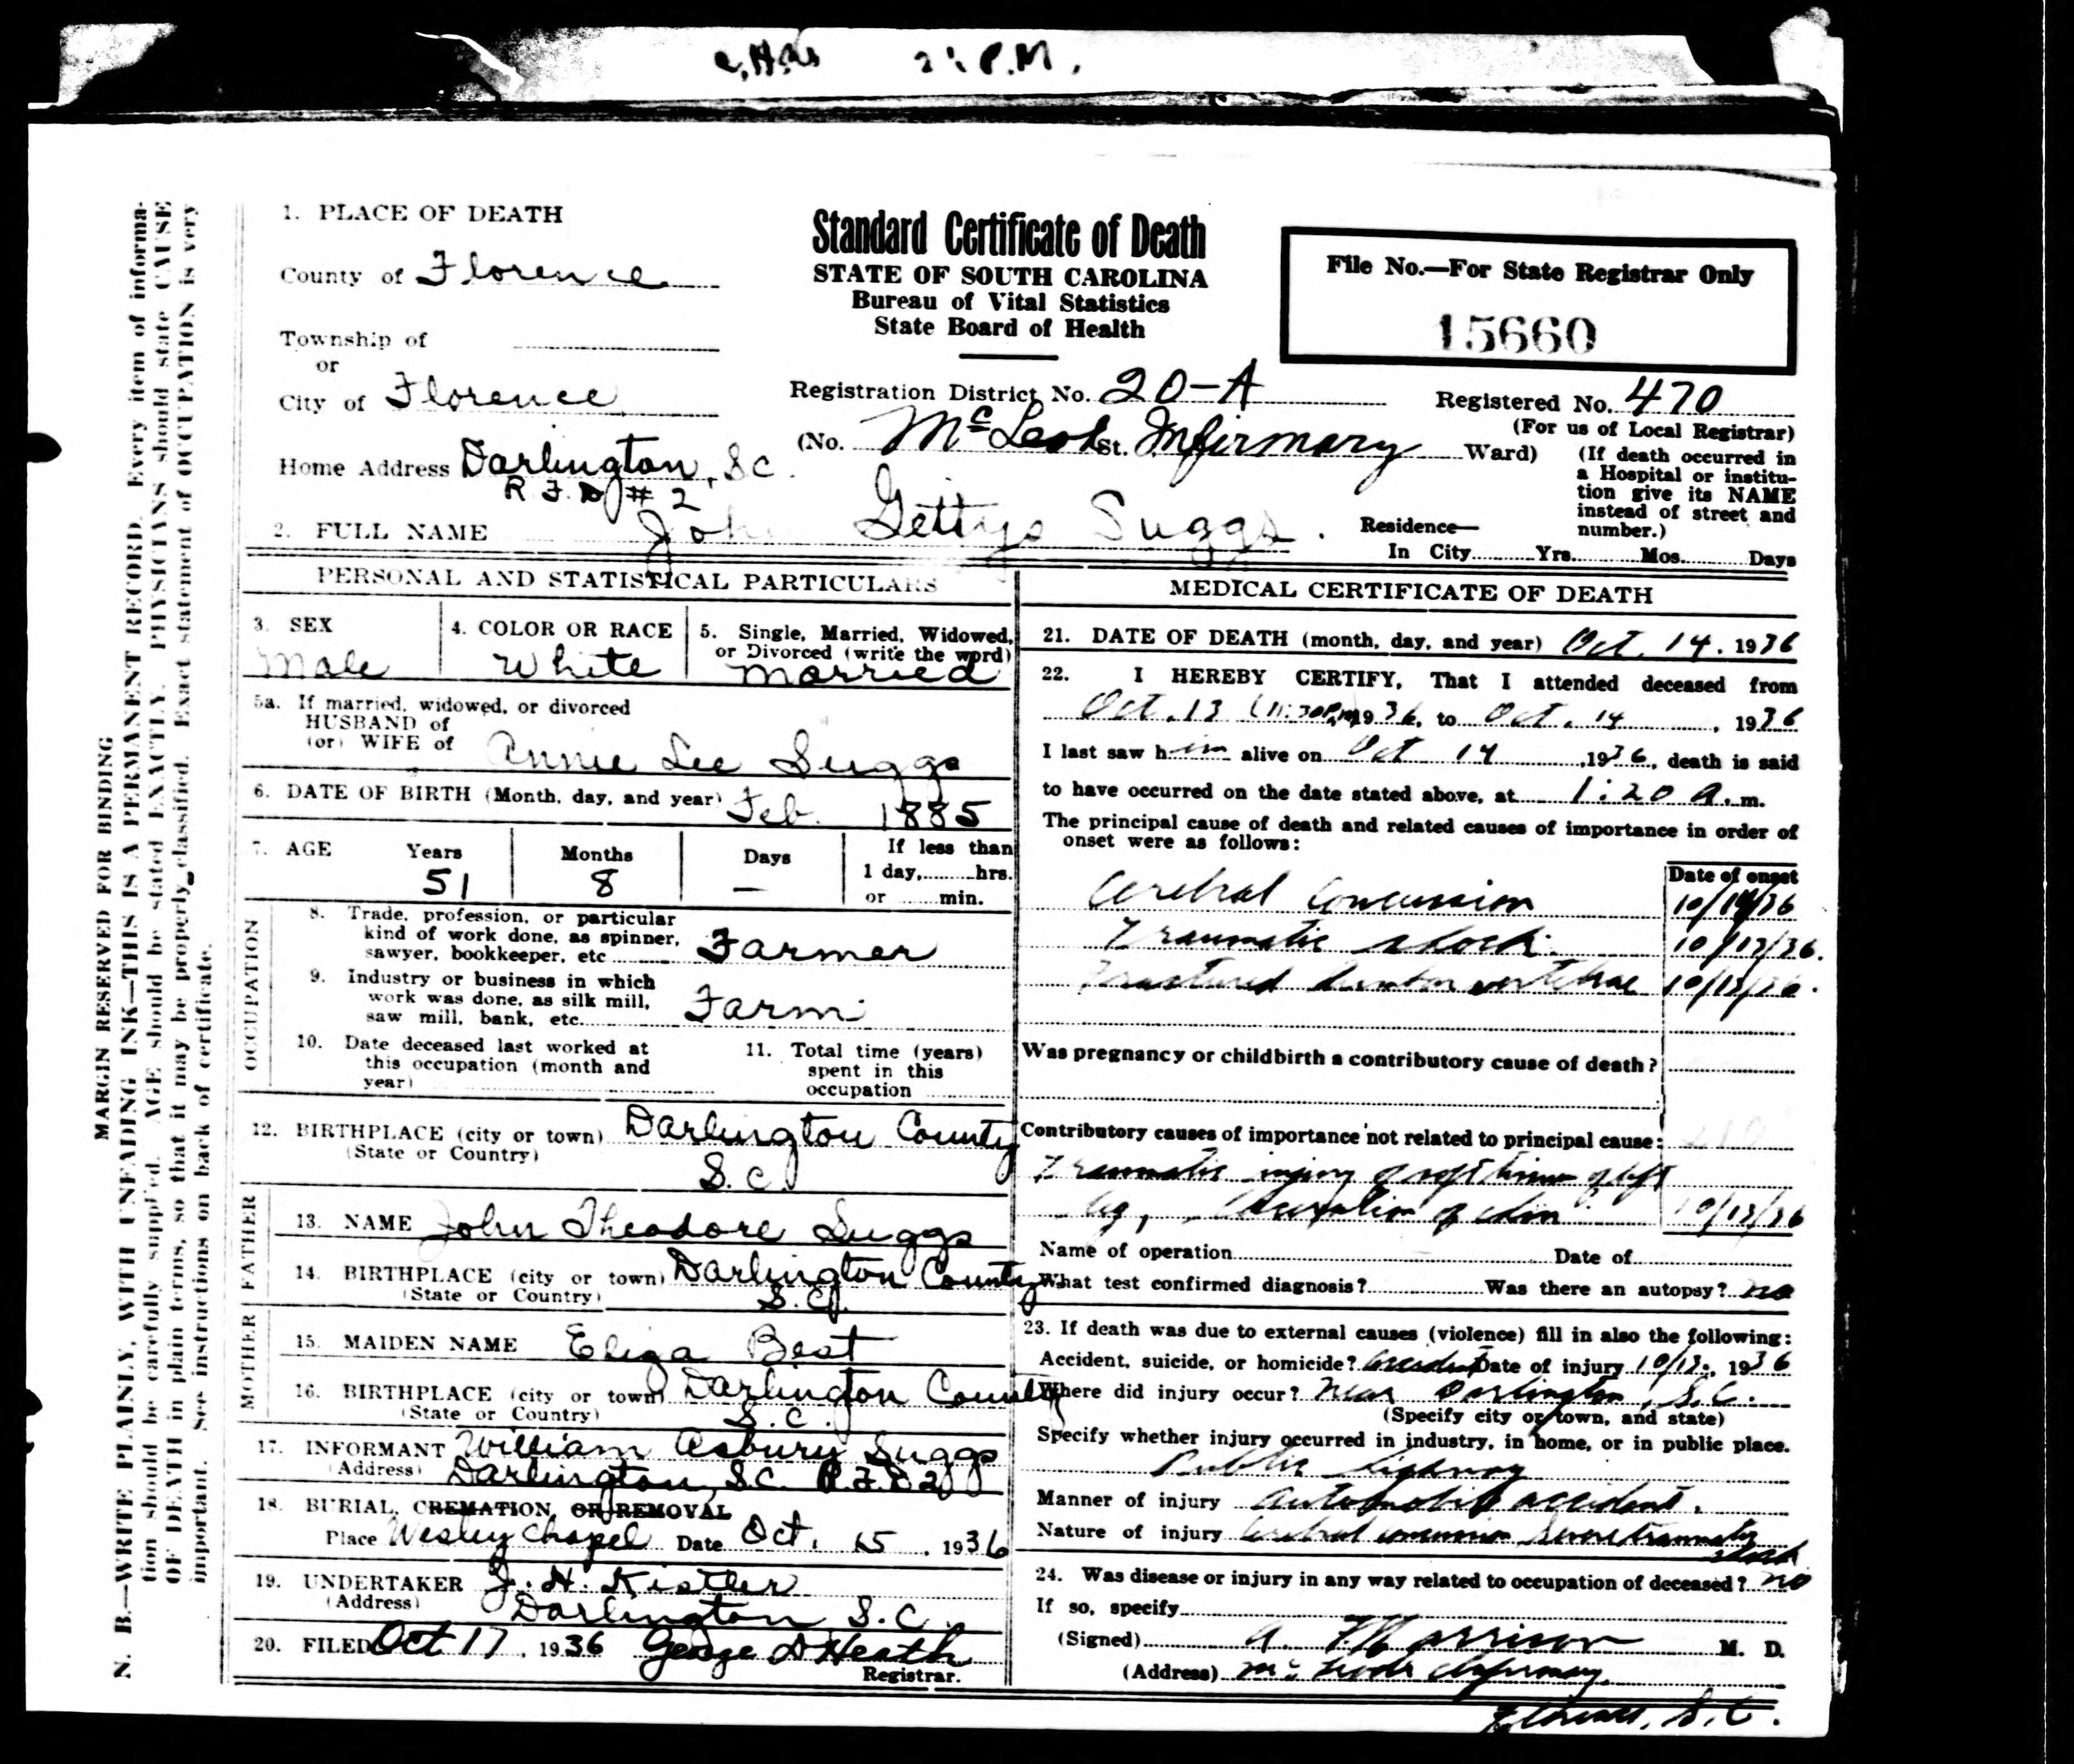 2: P.M.
MARGIN RESERVED FOR BINDING
N. B.—WRITE PLAINLY, WITH UNFADING INK—THIS IS A PERMANENT RECORD. Every item of informa-
tion should be carefully supplied. AGE should be stated EXACTLY. PHYSICIANS should state CAUSE
OF DEATH in plain terms, so that it may be properly classified. Exact statement of OCCUPATION is very
important. See instructions on back of certificate.
Standard Certificate of Death
STATE OF SOUTH CAROLINA
Bureau of Vital Statistics
State Board of Health
File No.—For State Registrar Only
15660
1. PLACE OF DEATH
County of Florence
Township of
or
City of Florence
Registration District No. 20-A
Registered No. 470
(For us of Local Registrar)
(No. McLeod St. Infirmary Ward)
(If death occurred in
a Hospital or institu-
tion give its NAME
instead of street and
number.)
Home Address Darlington, S.C.
R.F.D #2
2. FULL NAME John Gettys Suggs.
Residence—
In City Yrs. Mos. Days
PERSONAL AND STATISTICAL PARTICULARS
3. SEX
Male
4. COLOR OR RACE
White
5. Single, Married, Widowed,
or Divorced (write the word)
Married
5a. If married, widowed, or divorced
HUSBAND of
(or) WIFE of Annie Lee Suggs
6. DATE OF BIRTH (Month, day, and year) Feb. 1885
7. AGE
Years
51
Months
8
Days
—
If less than
1 day, hrs.
or min.
OCCUPATION
8. Trade, profession, or particular
kind of work done, as spinner,
sawyer, bookkeeper, etc Farmer
9. Industry or business in which
work was done, as silk mill,
saw mill, bank, etc. Farm
10. Date deceased last worked at
this occupation (month and
year)
11. Total time (years)
spent in this
occupation
12. BIRTHPLACE (city or town) Darlington County
(State or Country) S.C.
FATHER
13. NAME John Theodore Suggs
14. BIRTHPLACE (city or town) Darlington County
(State or Country) S.C.
MOTHER
15. MAIDEN NAME Eliza Best
16. BIRTHPLACE (city or town) Darlington County
(State or Country) S.C.
17. INFORMANT William Asbury Suggs
(Address) Darlington, S.C. R.F.D 2
18. BURIAL, CREMATION, OR REMOVAL
Place Wesley Chapel Date Oct. 15, 1936
19. UNDERTAKER J. H. Kistler
(Address) Darlington S.C.
20. FILED Oct 17, 1936 George D Heath
Registrar.
MEDICAL CERTIFICATE OF DEATH
21. DATE OF DEATH (month, day, and year) Oct. 14. 1936
22. I HEREBY CERTIFY, That I attended deceased from
Oct. 13 (11:30 P.M) 1936, to Oct. 14, 1936
I last saw him alive on Oct 14, 1936, death is said
to have occurred on the date stated above, at 1:20 A. m.
The principal cause of death and related causes of importance in order of
onset were as follows:
Date of onset
Cerebral Concussion 10/ /36
Traumatic shock. 10/13/36.
Fractured lumbar vertebrae 10/13/36.
Was pregnancy or childbirth a contributory cause of death?
Contributory causes of importance not related to principal cause:
Traumatic injury of soft tissue of left
leg, laceration of chin 10/13/36
Name of operation Date of
What test confirmed diagnosis? Was there an autopsy? no
23. If death was due to external causes (violence) fill in also the following:
Accident, suicide, or homicide? Accident Date of injury 10/13, 1936
Where did injury occur? Near Darlington, S.C.
(Specify city or town, and state)
Specify whether injury occurred in industry, in home, or in public place.
Public highway
Manner of injury Automobile accident.
Nature of injury Cerebral concussion Severe traumatic
shock
24. Was disease or injury in any way related to occupation of deceased? no
If so, specify
(Signed) Morrison M. D.
(Address) McLeod Infirmary,
Florence, S.C.